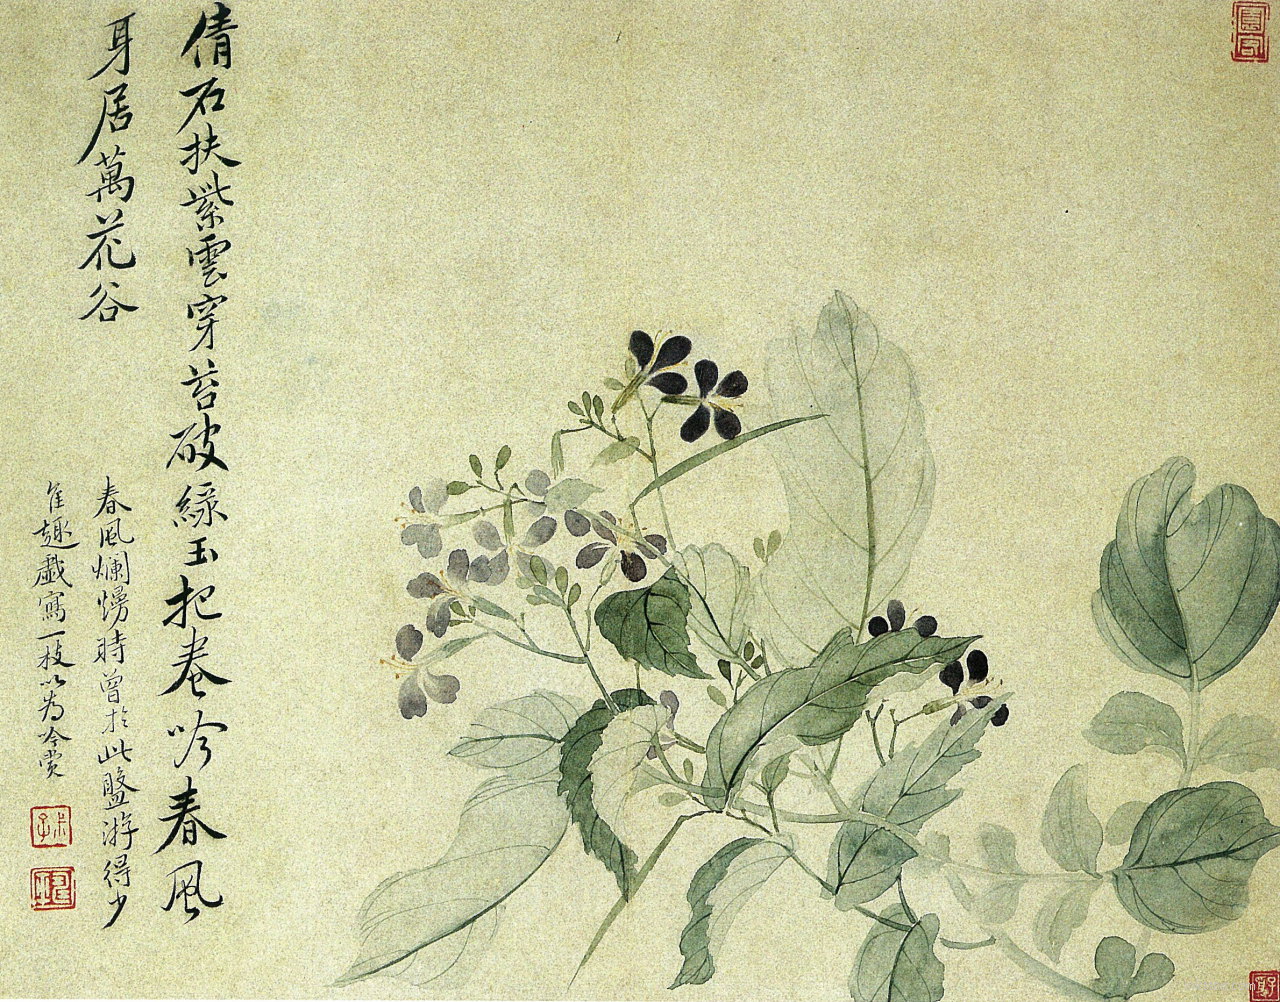 倩石扶紫雲穿苔破綠玉把卷吟春風
身居萬花谷
春風爛熳時曾於此盤游得少
佳趣戲寫一枝以為吟賞